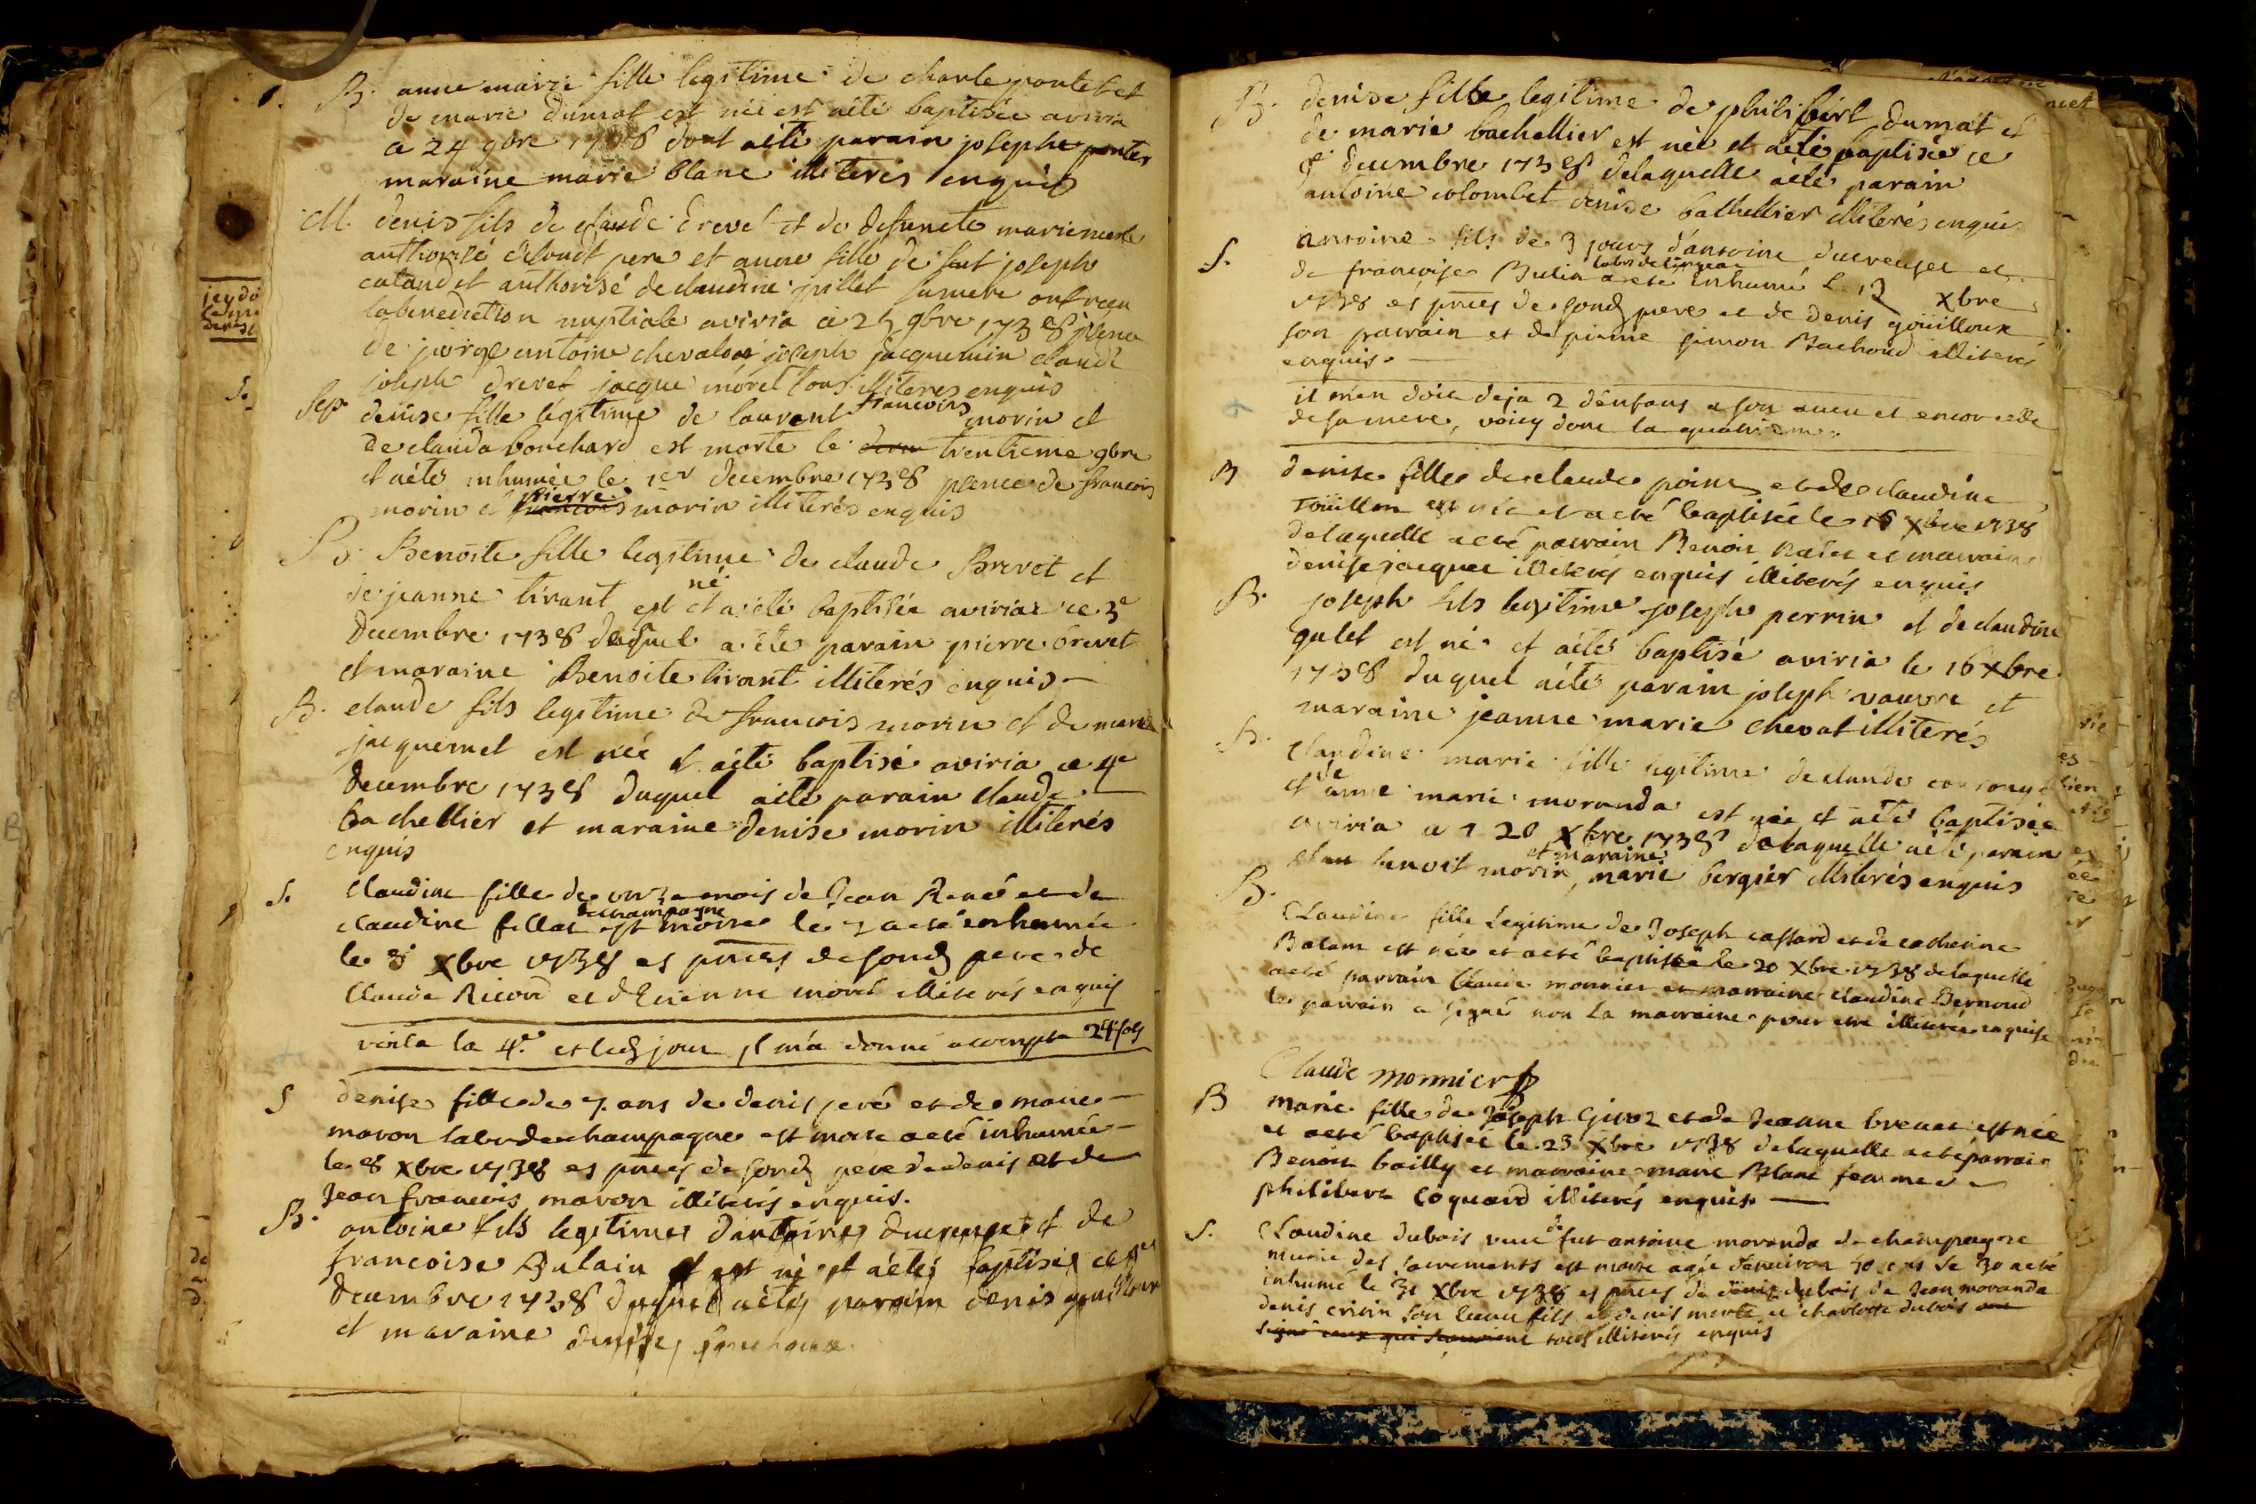 B. anne marie fille legitime de charle pontet et
de marie dumat est née est aété baptisée aviria
a 24 9bre 1738 dont aété parain josephe pontet
maraine marie blanc illiterés enquis
M. denis fils de claude drevet et de defuncte marie
authorisé desondt pere et anne fille de fut joseph
cataud et authorisé de claudine pillet samere ont reçu
labenediction nuptiale aviria a 25 9bre 1738
de antoine chevalot joseph jacquemin claude
joseph drevet jacque moret tous illiteres enquis
Sep. denise fille légitime de laurent francois morin et
de clauda bouchard est morte le trentieme 9bre
et aété inhumée le 1er decembre 1738 de francois
morin et pierre morin illiterés enquis
B. Benoite fille legitime de claude Brevet et
de jeanne tirant est né et a été baptisée aviria ce 3e
decembre 1738 duquel a été parain pierre brevet
et maraine Benoite tirant illiterés enquis
B. claude fils legitime de francois morin et de marie
jacquemet est née et aété baptisé aviria ce 4e
decembre 1738 duquel aété parain claude
bachellier et maraine denise morin illiterés
enquis
S. Claudine fille de mois de Jean René et de
claudine fillat dechampagne est morte le 7 a eté inhumée
le 8 Xbre 1738 es pnces de sondt pere de
Claude Ricord et d'Etienne moret illiterés enquis
voila la 4e. et ledt jour il m'a donné acompte 24 sols
S denise fille de 7 ans de denis et de marie
maron labrdechampagne est morte a eté inhumée
le 8 Xbre 1738 es pnces de sondt pere de denis et de
Jean francois maron illiterés enquis.
B. antoine fils legitime dantoine ducreuset et de
francoise Bulain est né et aété baptisé ce 9e
decembre 1738 duquel aété parain denis
et maraine denise
B. denise fille legitime de philibert dumat et
de marie bachellier est née et aété baptisée ce
9e decembre 1738 delaquelle aété parain
antoine colombet denise bachellier illiterés enquis
S. antoine fils de 3 jours d'antoine ducreuset et
de francoise Bulin a eté inhumé le 12 Xbre
1738 es pnces de sondt pere et de denis goüilloux
son parrain et de pierre simon Bachoud illiterés
enquis.
il m'en doit deja 2 d'enfans a son aveu et encor celle
de sa mere, voicy donc la quatrieme.
B denise fille de claude point et de claudine
Toüillon est née et a eté baptisée le 16 Xbre 1738
de laquelle a eté parrain Benoit et marraine
denise jacquet illiterés enquis illiterés enquis
B. joseph fils legitime joseph perrin et de claudine
gulet est né et aété baptisé aviria le 16 xbre
1738 duquel aété parain joseph vauvre et
maraine jeanne marie chevat illiterés
B. Claudine marie fille legitime de claude
et de anne marie moranda est née et aété baptisée
aviria a 20 Xbre 1738 delaquelle aété parain
benoit morin, et maraine marie bergier illiterés enquis
B. Claudine fille Legitime de Joseph cassard et de catherine
Balam est née et a eté baptisée le 20 Xbre 1738 de laquelle
a eté parrain Claude monnier et marraine claudine Bernoud
le parrain a signé non la marraine pour etre illiterée enquise
Claude monnier
B marie fille de Joseph Givoz et de Jeanne brevet est née
et a eté baptisée le 23 Xbre 1738 de laquelle a eté parrain
Benoit bailly et marraine marie Blanc femme de
philibert Coquard illiterés enquis.
S. Claudine dubois veuve de fut antoine moranda de champagne
munie des sacrements est morte agée denviron 70 ans le 30 a eté
inhumé le 31 Xbre 1738 es pnces de denis dubois de Jean moranda
denis crivin son beau fils et denis morte et charlotte dubois
signé ceux qui tous illiterés enquis